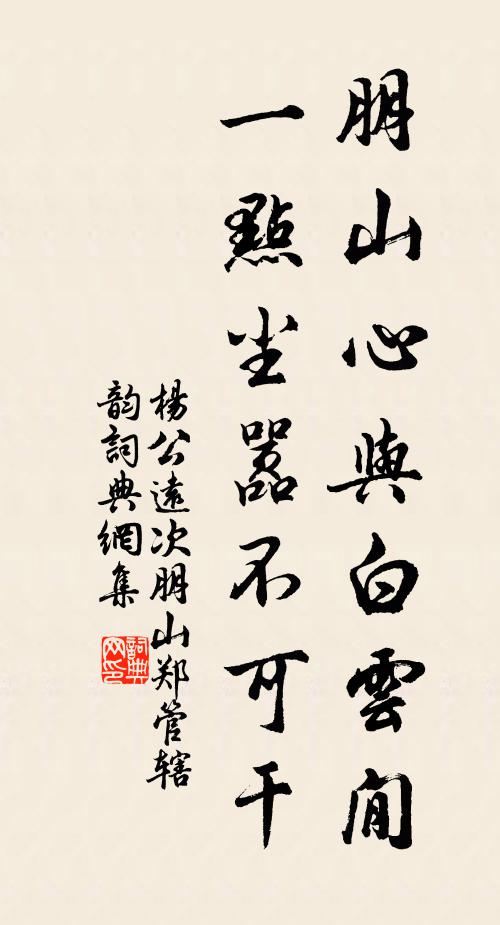 朋山心與白雲閒
一點尘囂不可干
楊公遠次朋山郑管辖
韵詞典網集
詞典网印